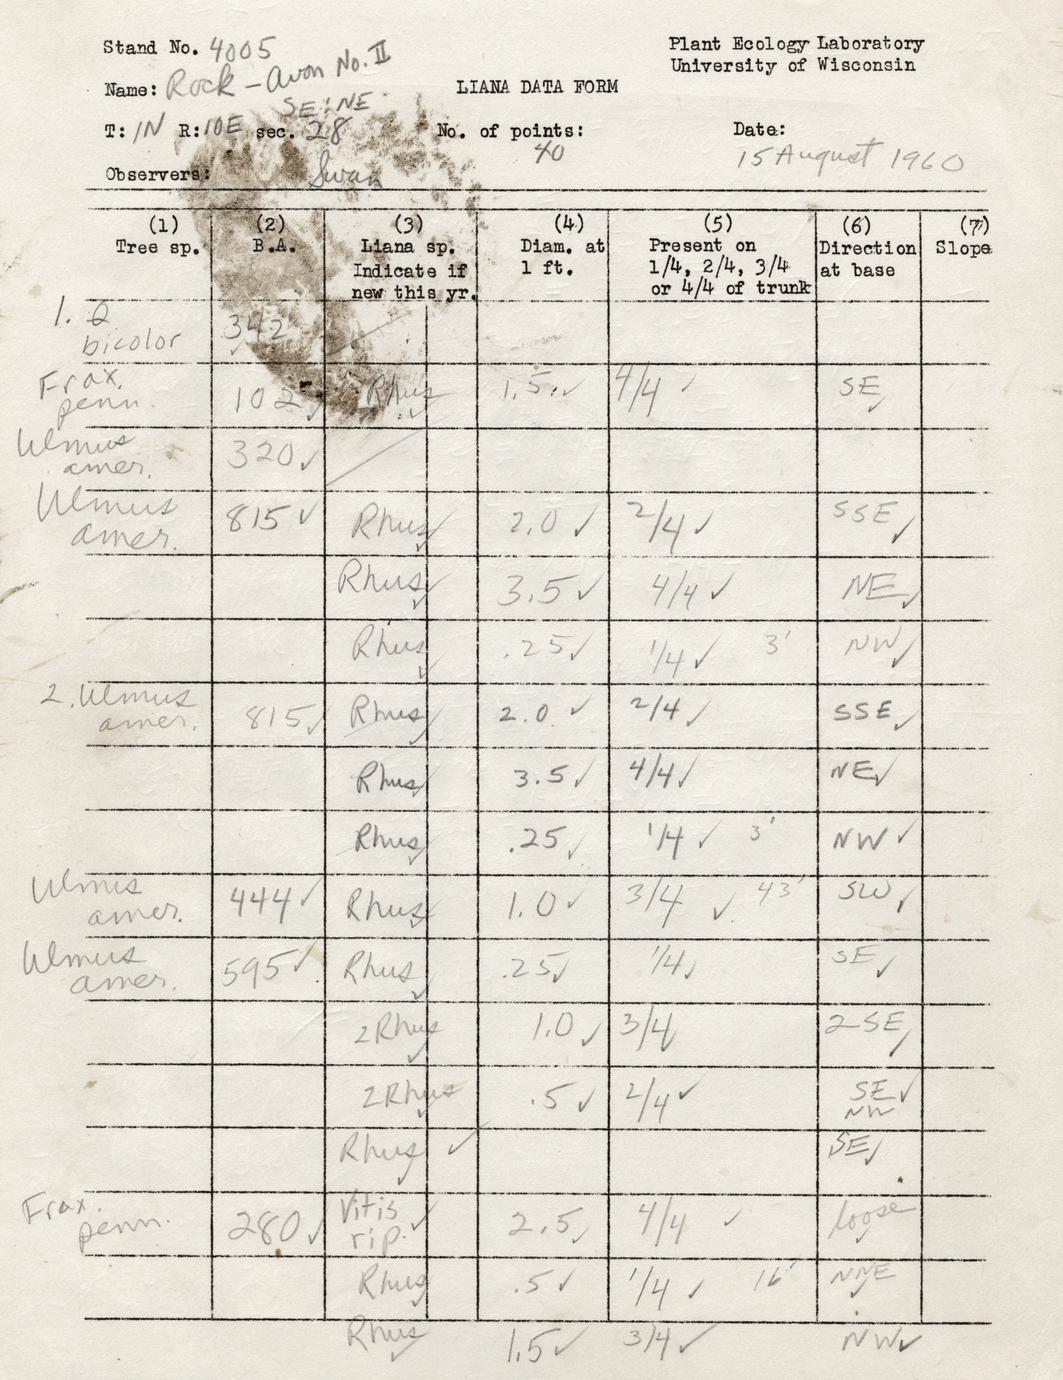 Stand No. 4005
Plant Ecology Laboratory
University of Wisconsin
Name: Rock - Avon No. II
LIANA DATA FORM
SE:NE
T: 1N R: 10E sec. 28
No. of points: 40
Date: 15 August 1960
Observers: Swan
(1) (2) (3) (4) (5) (6) (7)
Tree sp. B.A. Liana sp. Diam. at Present on Direction Slope
Indicate if 1 ft. 1/4, 2/4, 3/4 at base
new this yr. or 4/4 of trunk
1. Q bicolor 342 ✓
Frax. penn. 102 ✓ Rhus ✓ 1.5 ✓ 4/4 ✓ SE ✓
Ulmus amer. 320 ✓
Ulmus amer. 815 ✓ Rhus ✓ 2.0 ✓ 2/4 ✓ SSE ✓
Rhus ✓ 3.5 ✓ 4/4 ✓ NE ✓
Rhus ✓ .25 ✓ 1/4 ✓ 3' NW ✓
2. Ulmus amer. 815 ✓ Rhus ✓ 2.0 ✓ 2/4 ✓ SSE ✓
Rhus ✓ 3.5 ✓ 4/4 ✓ NE ✓
Rhus ✓ .25 ✓ 1/4 ✓ 3' NW ✓
Ulmus amer. 444 ✓ Rhus ✓ 1.0 ✓ 3/4 ✓ 43' SW ✓
Ulmus amer. 595 ✓ Rhus ✓ .25 ✓ 1/4 ✓ SE ✓
2 Rhus ✓ 1.0 ✓ 3/4 ✓ 2-SE ✓
2 Rhus ✓ .5 ✓ 2/4 ✓ SE ✓ NW
Rhus ✓ ✓ SE ✓
Frax. penn. 280 ✓ Vitis rip. ✓ 2.5 ✓ 4/4 ✓ loose ✓
Rhus ✓ .5 ✓ 1/4 ✓ 16' NNE ✓
Rhus ✓ 1.5 ✓ 3/4 ✓ NW ✓